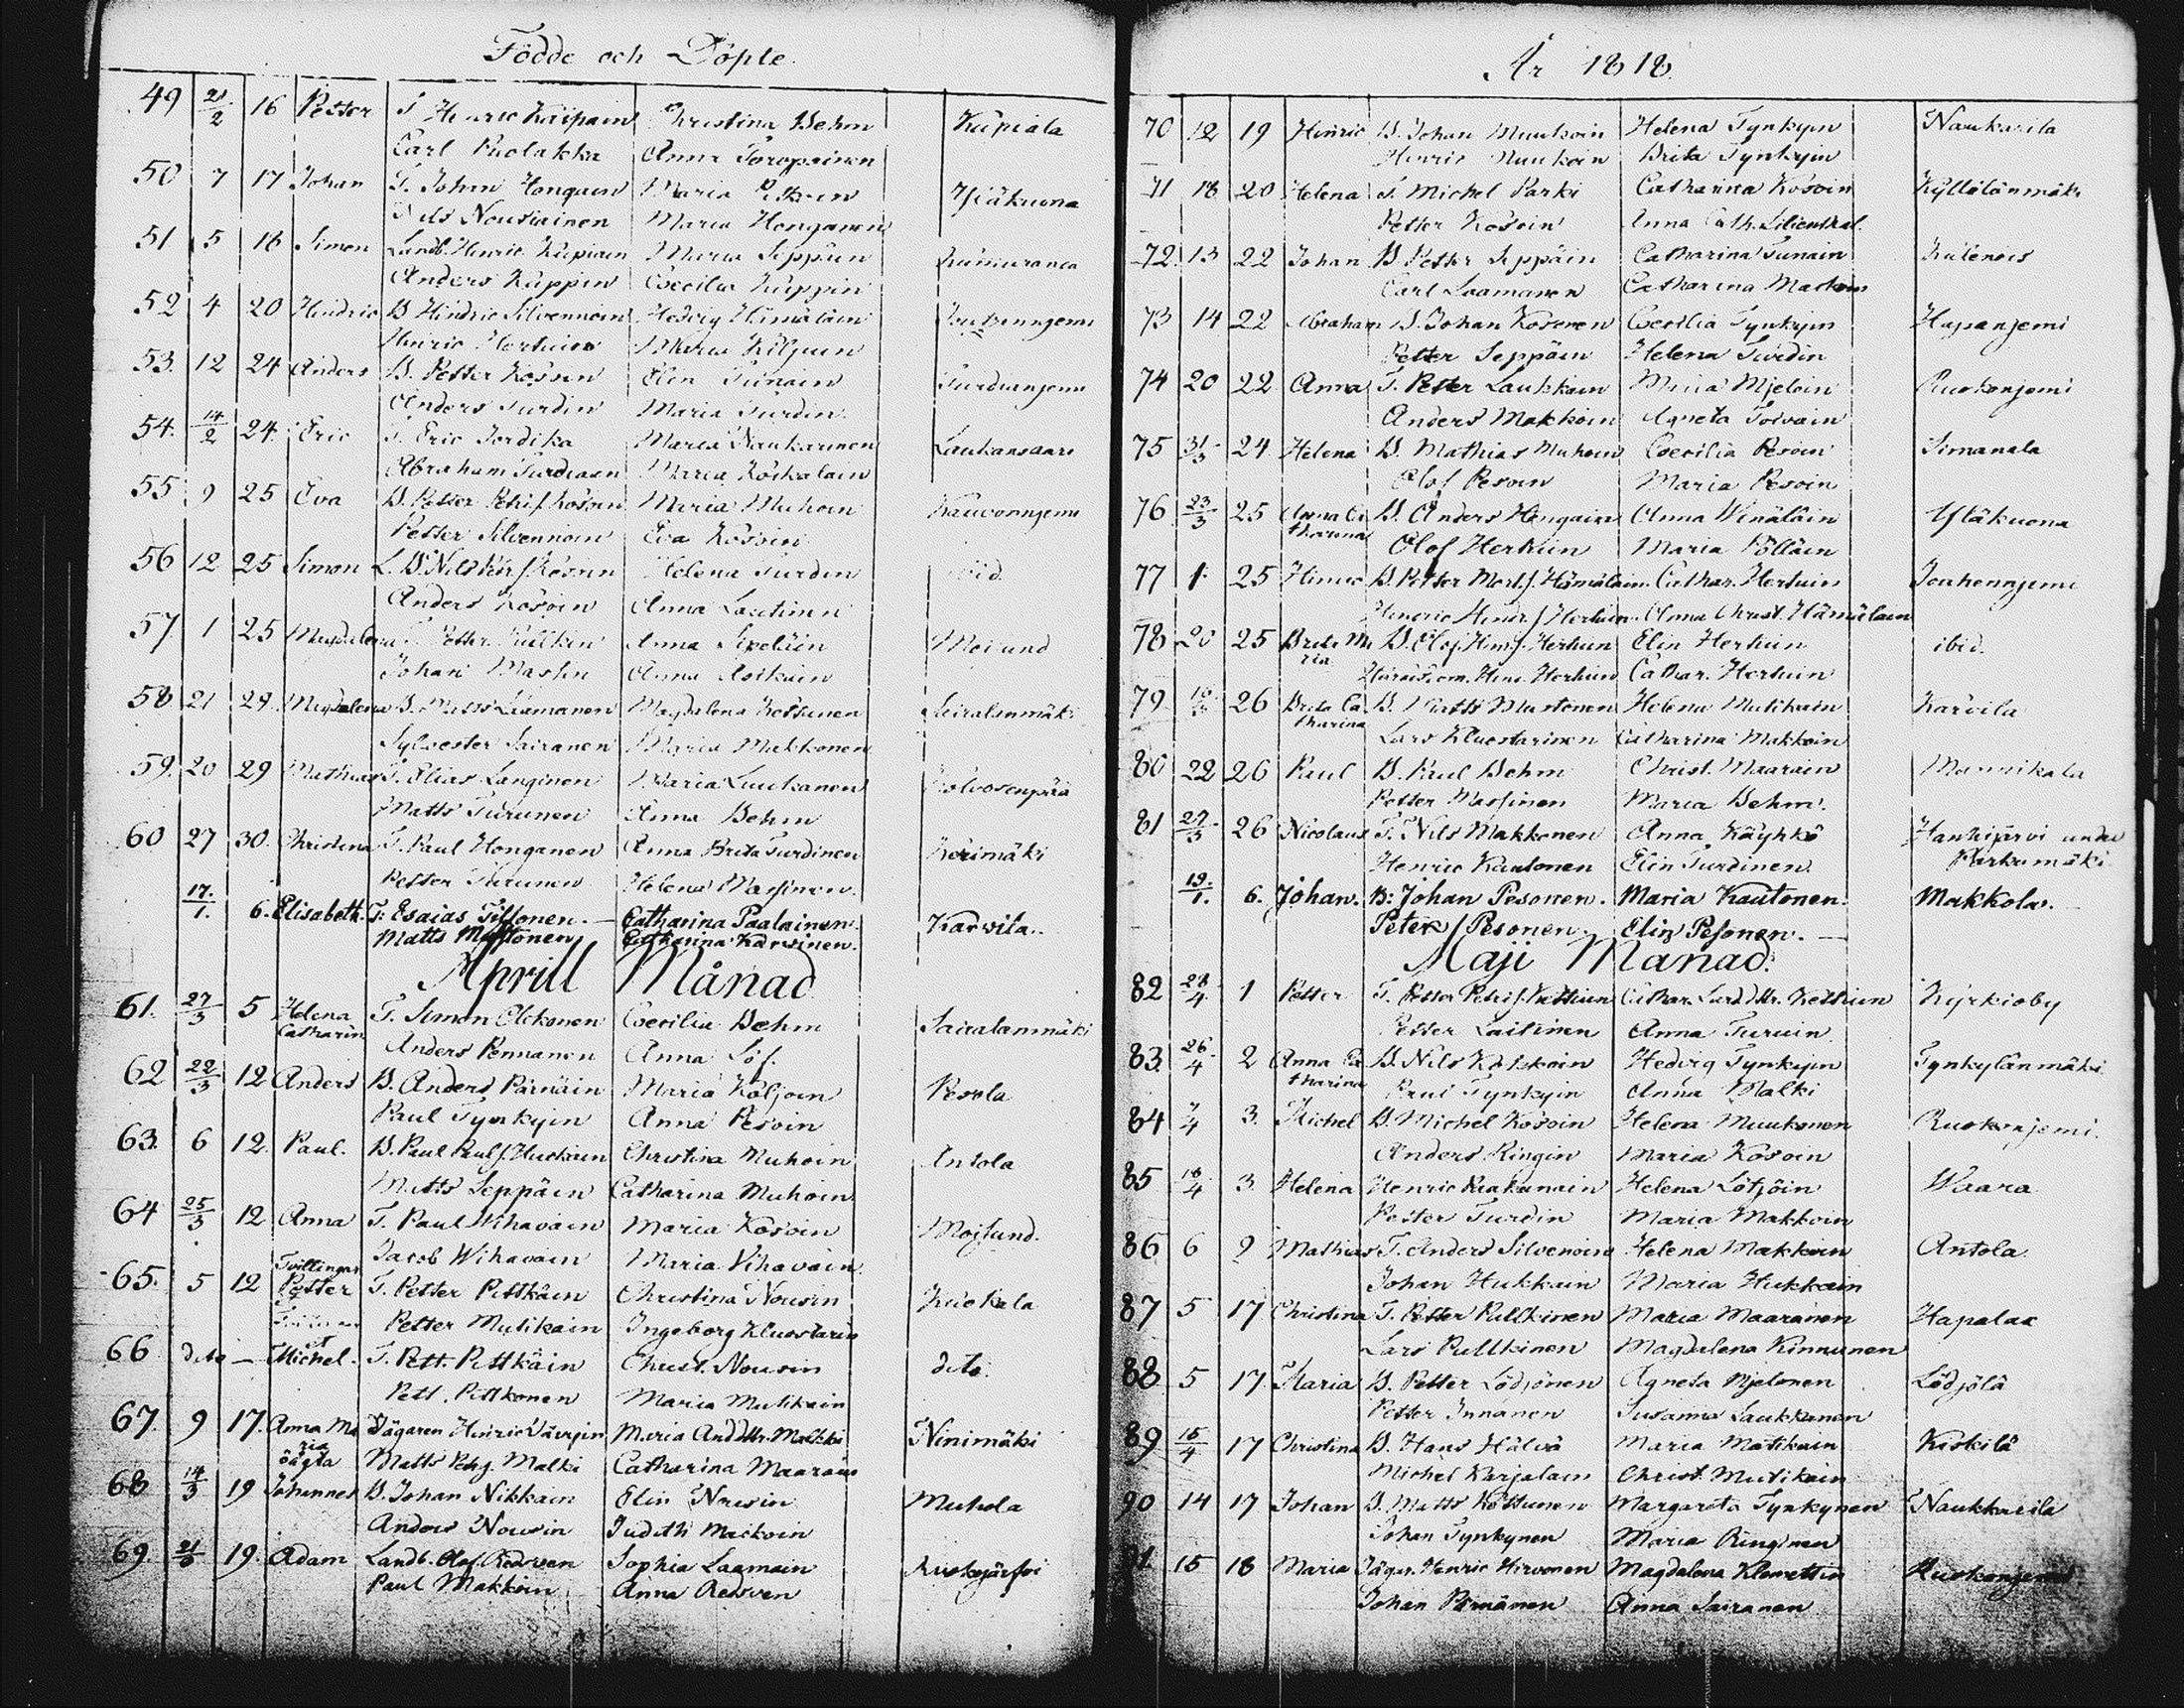 Födde och Döpte.
49 21/2 16 Petter T. Henric Käipain Christina Behm Kupiala
Carl Puolakka Anna Toropainen
50 7 17 Johan T. Johan Honguen Maria
Nils Nousiainen Maria Honganen
51 5 18 Simon Landb. Henric Maria Seppäin
Anders Käppin Coecilia Käppin
52 4 20 Hindric B Hindric Silvennoin Hedvig Hämäläin
Henric Hertuin Maria Kiljuin
53. 12 24 Anders B. Petter Kossen Elin
Anders Turdin Maria Turdin
54. 14/2 24. Eric T. Eric Jordika Maria Naukarinen Laukansaari
Abraham Turdiaen Maria Koskalain
55 9 25 Eva B. Petter Petri s. Kosoin Maria Muhoin Kauvonnjemi
Petter Silvennoin Eva Kosoin
56 12 25 Simon L. B. Nils Helena Turdin ibid.
Anders Kosoin Anna Lautinen
57 1 25 Magdalena T. Petter Pullkin Anna Sipeläin
Johan Massin Anna
58 21 28. Magdalena B. Matts Liimanen Magdalena Kettunen Sairalanmäki
Sylvester Sairanen Maria Makkonen
59. 20 29 Mathias T. Elias Langinen Maria Luukanen Kolvosenpää
Matts Turunen Anna Behm
60 27 30. Christina T. Paul Honganen Anna Brita Turdinen Kerimäki
Petter Turunen Helena Massinen.
17./1. 6. Elisabeth. T: Esaias Tillonen. — Catharina Paalainen. Karvila..
Matts Catharina Karvinen.
Aprill Månad
61. 27/3 5 Helena Catharin T. Simon Olikonen Coecilia Behm Sairalanmäki
Anders Pennanen Anna Löf.
62 22/3 12 Anders B. Anders Pärnäin Maria Koljoin Pesola
Paul Tynkyin Anna Pesoin
63. 6 12. Paul. B. Paul Paul s. Christina Muhoin Antola
Matts Seppäin Catharina Muhoin
64 25/3 12 Anna T. Paul Wihavain Maria Kosoin Mojsund.
Jacob Wihavain Maria Vihavain
65. 5 12 Tvillingar Petter T. Petter Pittkäin Christina Nousin Kuokala
Petter Mutikain Ingeborg Kluostarin
66 dito — et Michel. T. Pett. Pittkäin Christ. Nousin dito.
Pett. Pittkonen Maria Mutikain
67. 9 17. Anna Maria oägta Jägaren Henric Maria And. dtr. Malkki Ninimäki
Matts Malki Catharina Maarain
68 14/3 19 Johannes B. Johan Nikkain Elin Nousin Muhola
Anders Nousin Judith Maikoin
69. 21/3 19. Adam Landb. Olof. Redsven Sophia Laamain
Paul Makkoin Anna Redsven
År 1818.
70 12 19 Henric B. Johan Muukoin Helena Tynkyin Naukarila
Henric Muukoin Brita Tynkyin
71 18 20 Helena T. Michel Parki Catharina Kosoin Kyllölänmäki
Petter Kosoin Anna Cath. Lilienthal.
72 13 22 Johan B Petter Seppäin Catharina Tunain
Carl Laamanen Catharina
73 14 22 Abraham B. Johan Kosonen Coecilia Tynkyin Hapanjemi
Petter Seppäin Helena Turdin
74 20 22 Anna T. Petter Laukkain Maria Mjeloin Ruokonjemi
Anders Makkoin Agneta Toivain
75 31/3 24 Helena B. Mathias Muhoin Coecilia Pesoin Simanala
Olof Pesoin Maria Pesoin
76 23/3 25 Anna Catharina B. Anders Hongain Anna Wenäläin Yläkuona
Olof Herkiin Maria Pölläin
77 1. 25 Henric B. Petter Mort. s. Hämäläin Cathar. Hertuin Jouhennjemi
Henric Hindr. s. Hertuin Anna Christ. Hämäläin
78 20 25 Brita Maria B. Olof Hin. s. Hertuin Elin Hertuin ibid.
Hertuin Cathar. Hertuin
79 26 Brita Catharina B. Matts Mustonen Helena Mutikain Karvila
Lars Kluostarinen Catharina Makkoin
80 22 26 Paul B. Paul Behm Christ. Maarain Mannikala
Petter Massinen Maria Behm.
81 27/3 26 Nicolaus T. Nils Makkonen Anna Käyhkö Hankijärvi under Parkumäki
Henric Kautonen Elin Turdinen
19./1. 6. Johan. B: Johan Pesonen. Maria Kautonen. Makkola.
Peter Pesonen. Elin Pesonen. —
Maji Månad.
82 28/4 1 Petter T. Petter Petri s. Kettuin Cathar. Lars dtr. Kettuen Kyrkioby
Petter Laitinen Anna Turuin
83. 26/4 2 Anna Catharina B. Nils Kokkoin Hedvig Tynkyin Tynkylänmäki
Paul Tynkyin Anna Malki
84 7/4 3. Michel B. Michel Kosoin Helena Muukonen Ruokonjemi.
Anders Ringin Maria Kosoin
85 18/4 3 Helena Henric Helena Lötjöin Waara
Petter Turdin Maria Makkoin
86 6 9 Mathias T. Anders Silvenoin Helena Makkoin Antola
Johan Hukkain Maria Hukkain
87 5 17 Christina T. Petter Pullkinen Maria Maaranen Hapalax
Lars Pullkinen Magdalena Kinnunen
88 5 17 Maria B. Petter Lödjönen Agneta Mjelonen Lödjölä
Petter Innanen Susanna Laukkanen
89 15/4 17 Christina B. Hans Hälvä Maria Matikain Kiskilä
Michel Karjalain Christ. Mutikain
90 14 17 Johan B. Matts Kettunen Margareta Tynkynen Naukkarila
Johan Tynkynen Maria Ringinen
91 15 18 Maria Jägar. Henric Hirvonen Magdalena Klemettin Ruokonjemi
Johan Pärnänen Anna Sairanen